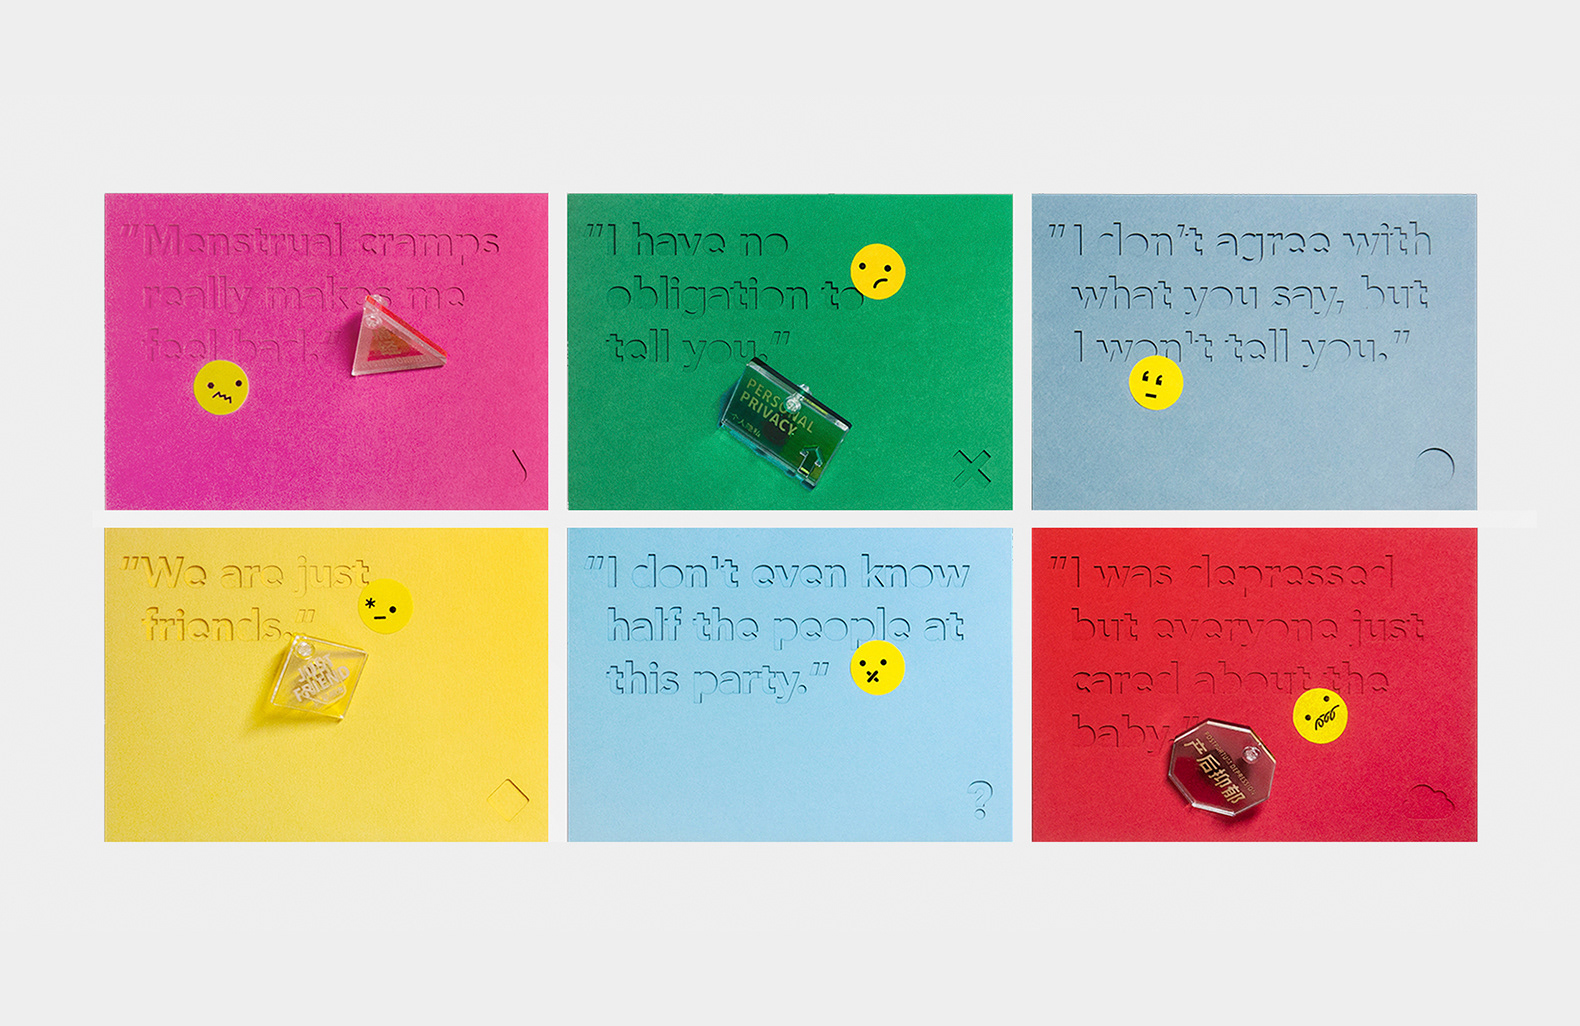 "Menstrual cramps
really makes me
feel bad."
"I have no
obligation to
tell you."
PERSONAL
PRIVACY
个人隐私
"I don't agree with
what you say, but
I won't tell you."
"We are just
friends."
JUST
FRIEND
"I don't even know
half the people at
this party."
?
"I was depressed
but everyone just
cared about the
baby."
POSTPARTUM DEPRESSION
产后抑郁